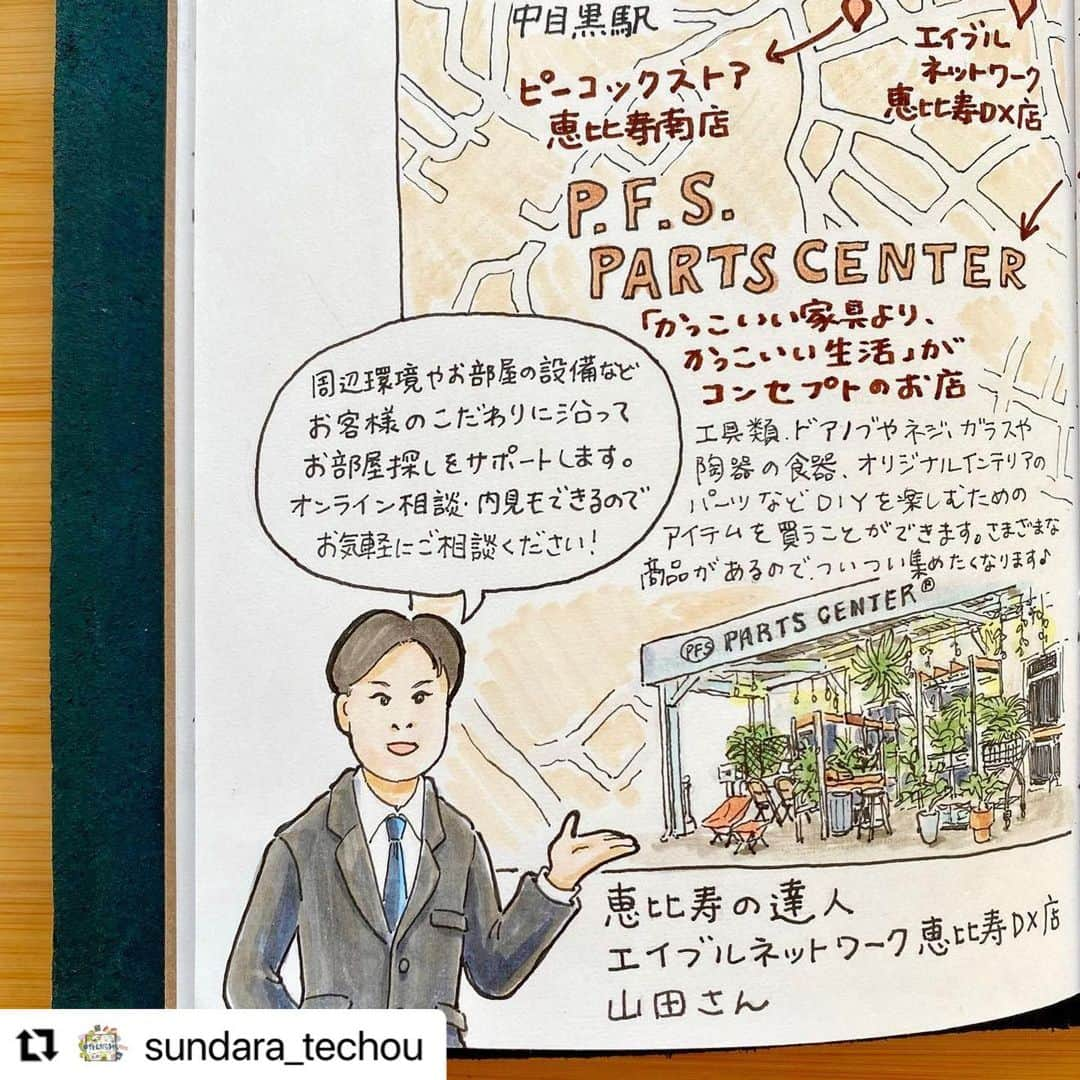 中目黒駅
ピーコックストア
恵比寿南店
エイブル
ネットワーク
恵比寿DX店
P.F.S.
PARTS CENTER
「かっこいい家具より、
かっこいい生活」が
コンセプトのお店
工具類、ドアノブやネジ、ガラスや
陶器の食器、オリジナルインテリアの
パーツなどDIYを楽しむための
アイテムを買うことができます。さまざまな
商品があるので、ついつい集めたくなります♪
周辺環境やお部屋の設備など
お客様のこだわりに沿って
お部屋探しをサポートします。
オンライン相談・内見もできるので
お気軽にご相談ください!
PFS PARTS CENTER®
恵比寿の達人
エイブルネットワーク恵比寿DX店
山田さん
sundara_techou